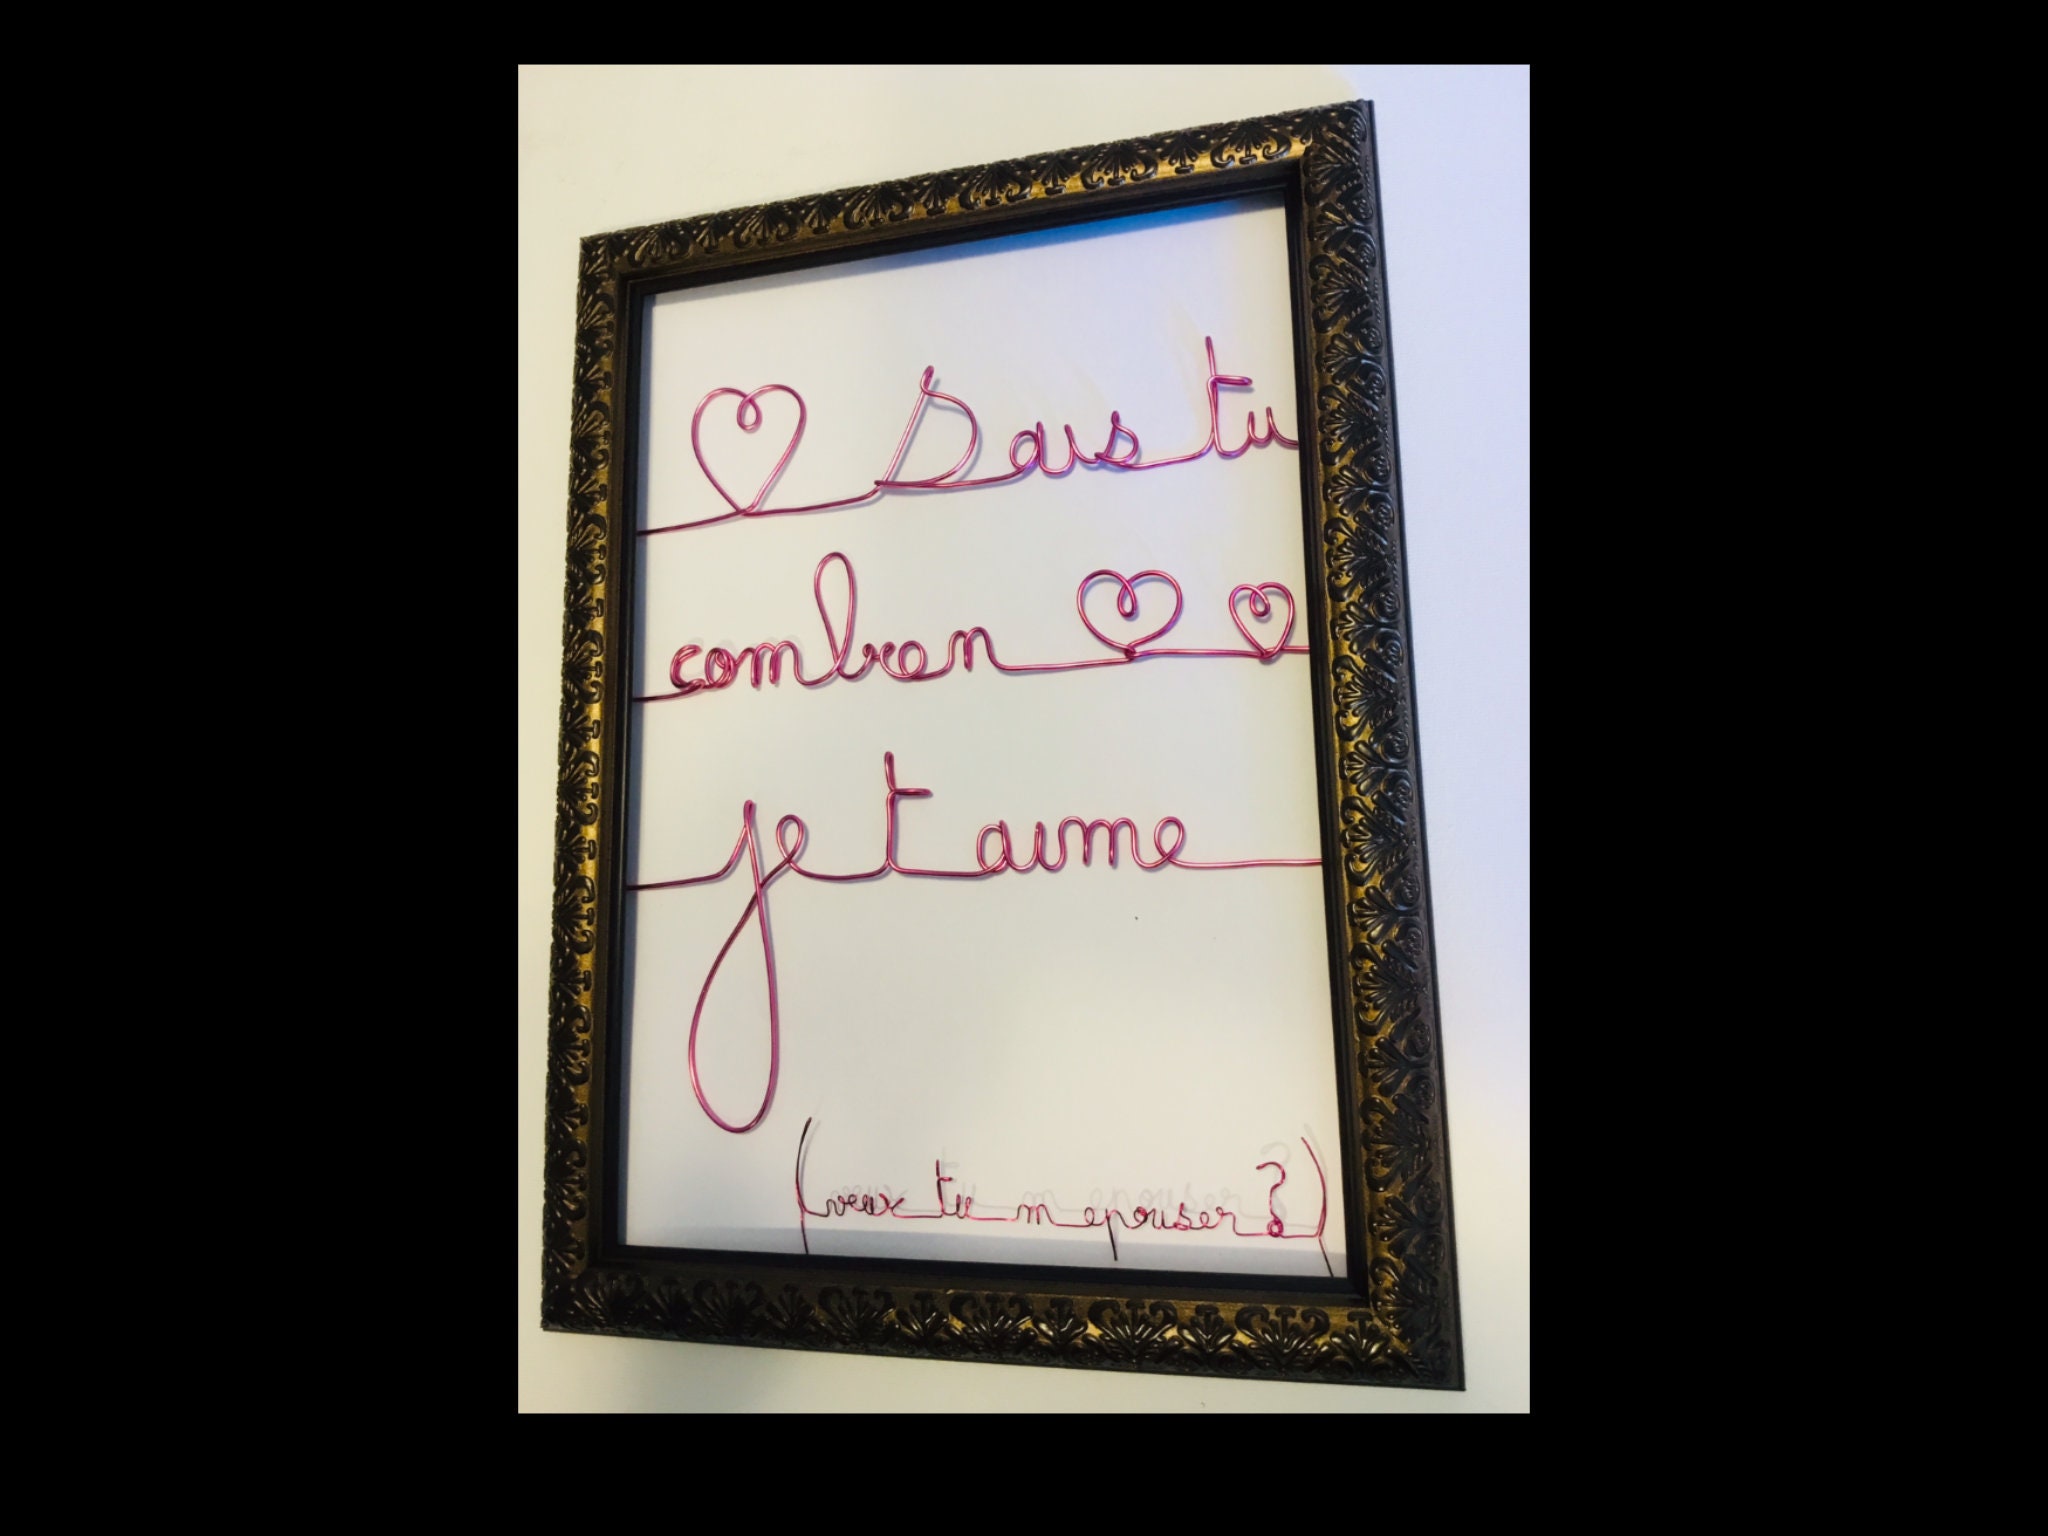 Sais tu
combien
je t aime
(veux tu m epouser ?)